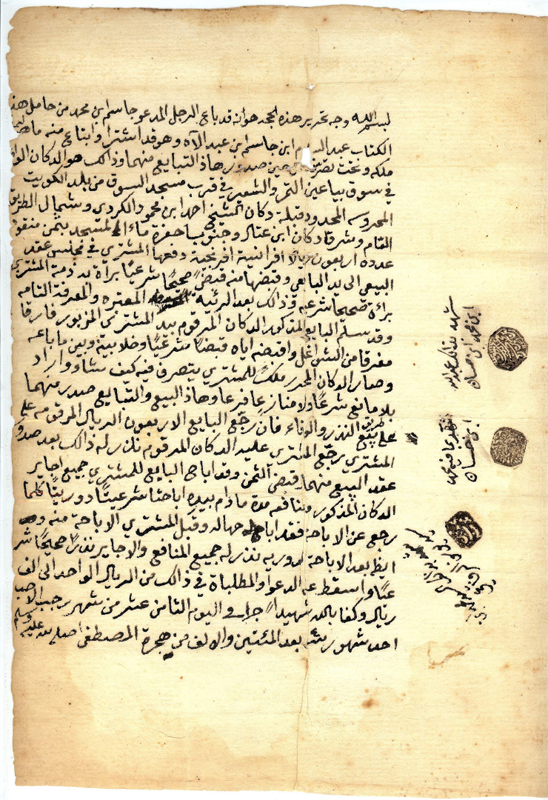 بسم الله وجه تحرير هذه الحجه هوانه قد باع الرجل المدعو جاسم ابن محمد من حامل هذا
الكتاب عبد ابن جاسم ابن عبد الآه وهو قد اشترا وابتاع منه ما هو
ملكه وتحت تصرفه حين صدور هاذ التبايع منهما وذالك هو الدكان
في سوق بياعين التمر والشعير في قرب مسجد السوق من بلد الكويت
المحروسه المحدود قبلة دكان الشيخ احمد ابن محمود الكردي وشمال الطريق
العام وشرقا دكان ابن عتال وجنوبا حفرة ماء المسجد بثمن منقود
عدده اربعون ريالا افرانسية دفعها المشتري في مجلس عقد
البيع الى يد البايع وقبضها منه قبضا صحيحا شرعيا براة به ذمة المشتري
براة صحيحا شرعيه وذالك بعد الرئيه المعتبره والمعرفة التامه
وقد سلم البايع المذكور الدكان المرقوم بيد المشتري المزبور فارغا
مفرغا من الشواغل واقبضه اياه قبضا شرعيا وخلا بينه وبين ما باعه
وصار الدكان المحدد ملك للمشتري يتصرف فيه كيف شاء واراد
بلا مانع شرعا ولا منازع عرفا وهاذ البيع والتبايع صدر منهما
على بيع النذر والوفاء فان رجع البايع الاربعون الريال المرقومه على
المشتري رجع المشتري عليه الدكان المرقوم نذر له ذالك بعد صدور
عقد البيع منهما وقبض الثمن وقد اباح البايع للمشتري جميع اجاير
الدكان المذكور ومنافعه مدة ما دام بيده اباحتا شرعيتا دوريتا كلما
رجع عن الاباحة فقد اباح وقبل المشتري الاباحة منه
ايظا بعد الاباحة نذر له جميع المنافع والاجاير نذرا صحيحا
عيا واسقط عنه الدعوا والمطلباة في ذالك من الريال الواحد الى الف
ريال وكفا بالله شهيدا جرا في اليوم الثامن عشر من شهر رجب
احد شهور سنة بعد المئتين والالف من هجرة المصطفى صلى الله عليه وسلم
شهد بذالك
ابن
شهد بما فيه محمد
ابن